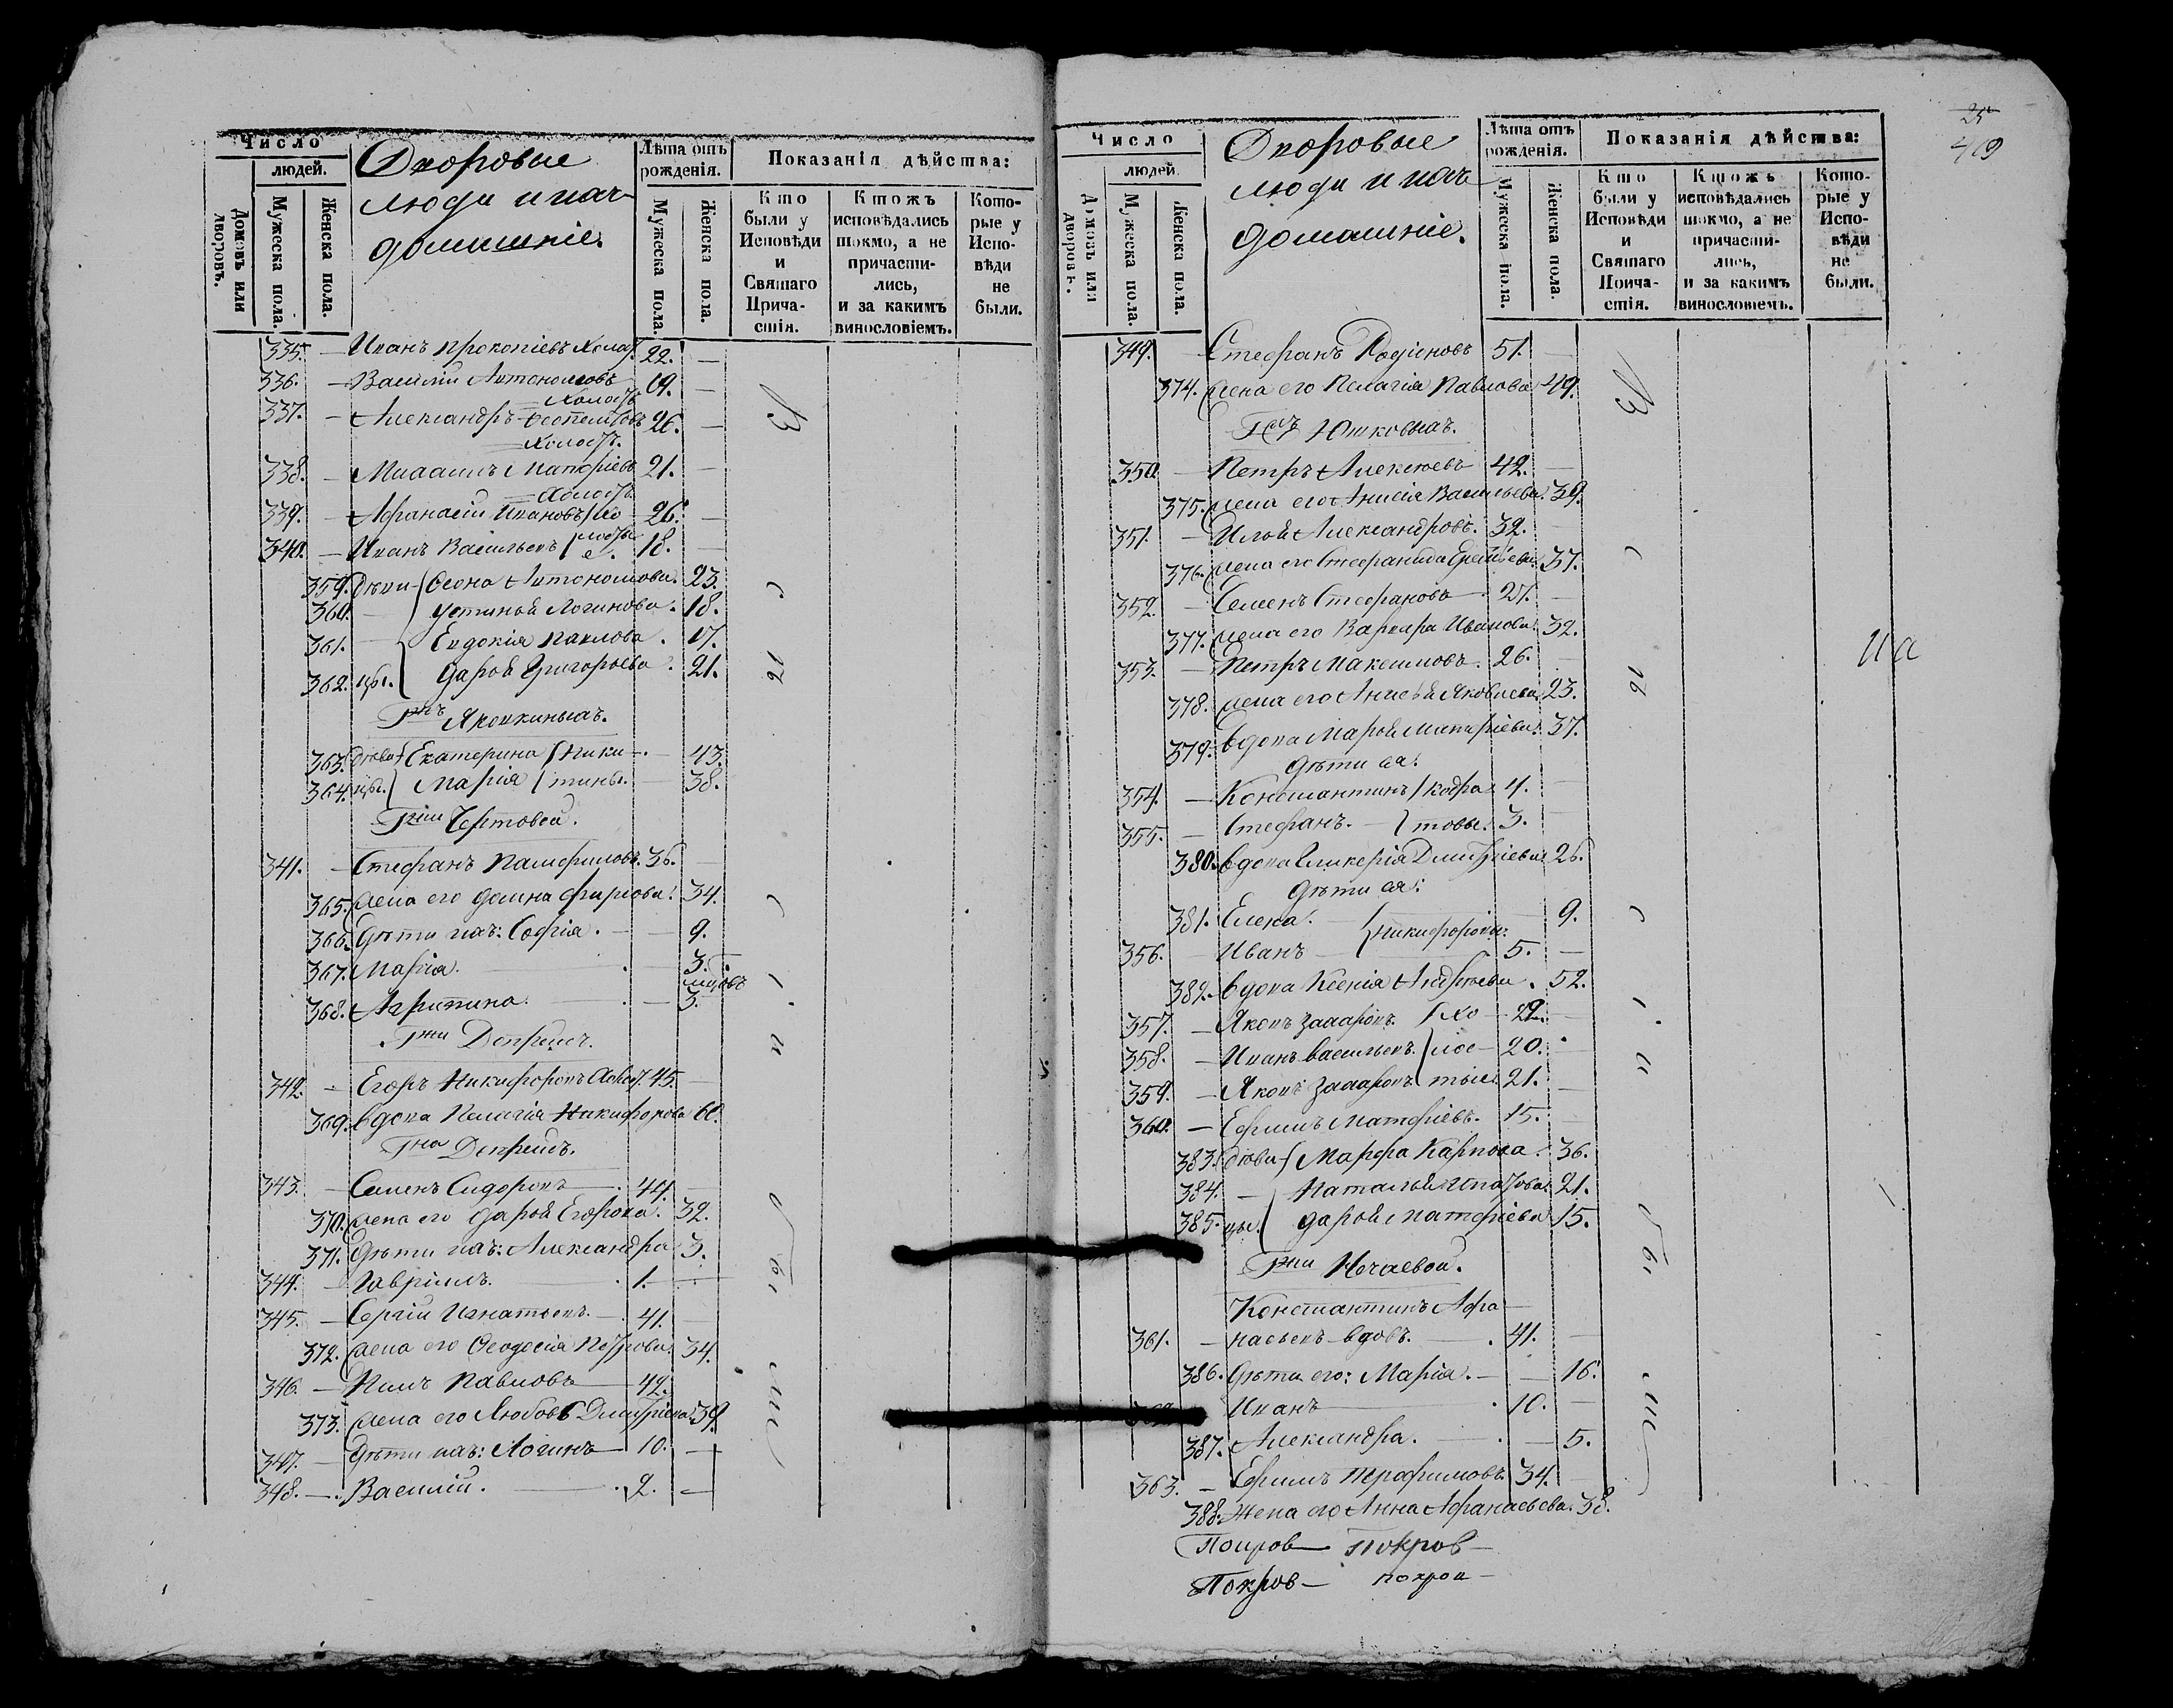 Число
людей.
Домовъ или дворовъ.
Мужеска пола.
Женска пола.
Дворовые
люди и ихъ
домашніе.
Лѣта отъ рожденія.
Мужеска пола.
Женска пола.
Показанія дѣйства:
Кто были у Исповѣди и Святаго Прича-стія.
Ктожъ исповѣдались токмо, а не причасти-лись, и за какимъ винословіемъ.
Кото-рые у Испо-вѣди не были.
335. — Иванъ Прокопіевъ Холос. 22. —
336. — Василій Автономовъ 19. —
Холостъ
337. — Александръ Феопемтовъ 26. —
Холостъ.
338. — Михаилъ Матфіевъ 21. —
Холостъ
339. — Афанасій Ивановъ Хо 26. —
340. — Иванъ Васильевъ лосты е. 18. —
359. Дѣви Ѳеона Автономова. 23.
360. — Устинья Логинова. 18.
361. — Евдокія Павлова. 17.
362. цы. Дарья Григорьева. 21.
Гжъ Ярошкиныхъ.
363. Дѣви Екатерина Ники — 43.
364. цы. Марія тины. — 38.
Гжи Чертовой.
341. — Стефанъ Памфиловъ 36. —
365. жена его Домна Фирсова. 34.
366. Дѣти ихъ: Софія. — 9.
367. Марія. — 3.
368. Агрипина. — 3.
мцовъ
Гжи Депрейсъ.
342. — Егоръ Никифоровъ Холос. 45. —
369. вдова Пелагія Никифорова 60.
Гна Депрейсъ.
343. — Семенъ Сидоровъ 44. —
370. жена его Дарья Егорова. 32.
371. Дѣти ихъ: Александра 3.
344. — Гавріилъ. 1. —
345. — Сергій Игнатьевъ. 41. —
372. жена его Ѳеодосія Петрова. 34.
346. — Нилъ Павловъ 42.
373. жена его Любовь Дмитріева. 39.
347. — Дѣти ихъ: Логинъ 10. —
348. — Василій. 2. —
В
с
ѣ
бы
ли
25
409
Число
людей.
Домовъ или дворовъ.
Мужеска пола.
Женска пола.
Дворовые
люди и ихъ
домашніе.
Лѣта отъ рожденія.
Мужеска пола.
Женска пола.
Показанія дѣйства:
Кто были у Исповѣди и Святаго Прича-стія.
Ктожъ исповѣдались токмо, а не причасти-лись, и за какимъ винословіемъ.
Кото-рые у Испо-вѣди не были.
349. — Стефанъ Родіоновъ 51. —
374. жена его Пелагія Павлова 49.
Гдъ Юшковыхъ.
350. — Петръ Алексѣевъ 42. —
375. жена его Анисія Васильева. 39.
351. — Илья Александровъ. 39. —
376. жена его Стефанида Еремѣева. 37.
352. — Семенъ Стефановъ 27. —
377. жена его Варвара Иванова. 32.
353. — Петръ Максимовъ. 26. —
378. жена его Анисья Яковлева. 23.
379. вдова Марья Матфіева. 37.
дѣти ея:
354. — Константинъ Кодра 4. —
355. — Стефанъ. — товы. 3. —
380. вдова Гликерія Дмитріева 26.
дѣти ея:
381. Елена. 9.
Никифоровы.
356. — Иванъ 5. —
382. вдова Ксенія Андреева. 52.
357. — Яковъ Захаровъ. Хо 22. —
358. — Иванъ Васильевъ. лос 20. —
359. — Яковъ Захаровъ тые. 21. —
360. — Ефимъ Матфіевъ. 15. —
383. Дѣви Марфа Карпова. 36.
384. — Наталья Ипатова. 21.
385. цы. Дарья Матфіева 15.
Гжи Нечаевой.
Константинъ Афа
361. — насьевъ вдовъ. 41. —
386. Дѣти его: Марія. — 16.
362. Иванъ 10. —
387. Александра. — 5.
363. — Ефимъ Трофимовъ 34. —
388. Жена его Анна Афанасьева. 38.
Покров — Покров —
Покров — покров —